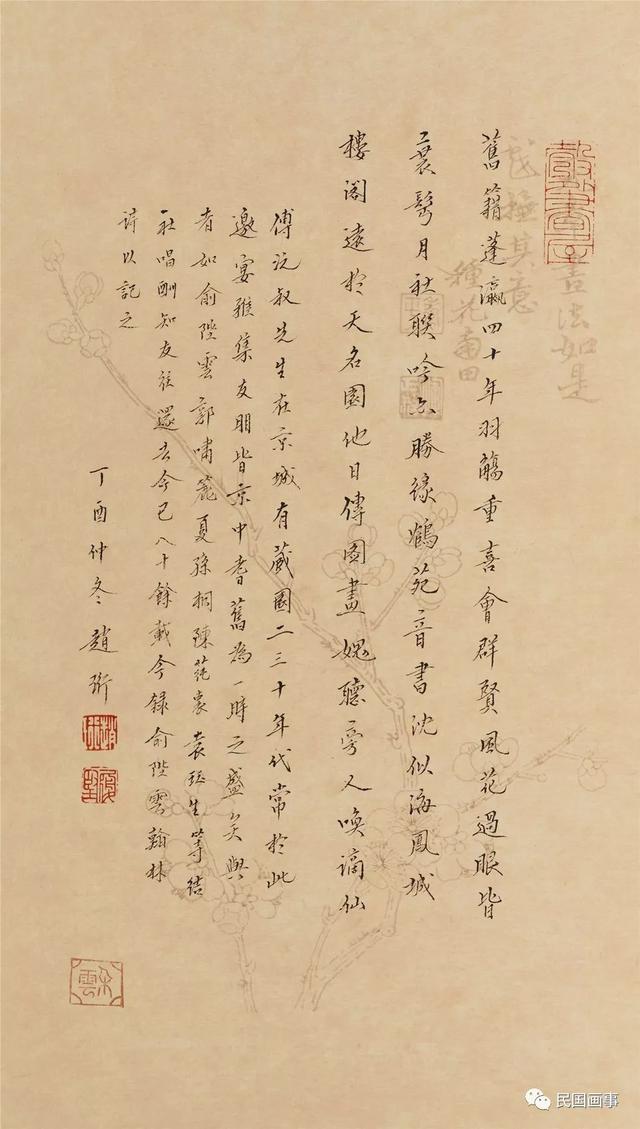 書法如是
極其意
種花南田
舊籍蓬瀛四十年羽觴重喜會群賢風花過眼皆
衰髩月社聯吟亦勝緣鶴苑音書沈似海鳳城
樓閣遠於天名園他日傳圖畫媿聽旁人喚謫仙
傅沅叔先生在京城有藏園二三十年代常於此
邀宴雅集友朋皆京中耆舊為一時之盛矣與
者如俞陛雲郭嘯麓夏孫桐陳蒓衷袁珏生等結
社唱酬知友往還去今已八十餘載今錄俞陛雲翰林
詩以記之
丁酉仲冬趙珩
民国画事